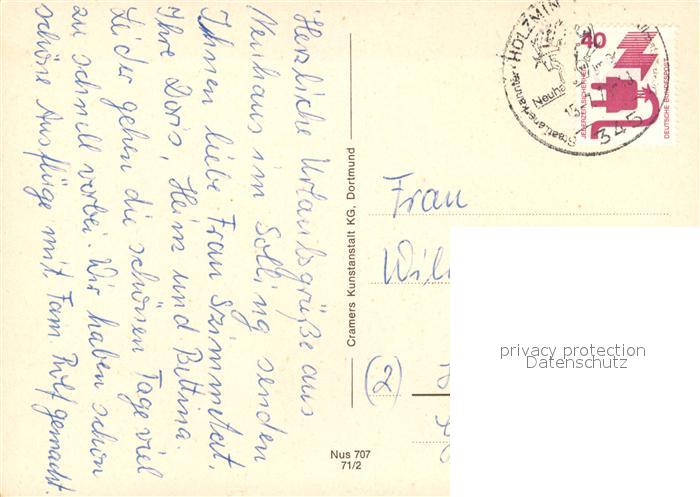 Herzliche Urlaubsgrüße aus
Neuhaus im Solling senden
Ihnen liebe Frau Szimmetat,
Ihre Doris, Heinz und Bettina.
Leider gehen die schönen Tage viel
zu schnell vorbei. Wir haben schon
schöne Ausflüge mit Fam. Rolf gemacht.
Cramers Kunstanstalt KG, Dortmund
Nus 707
71/2
HOLZMIN
Staatl. anerkannter
Neuha
345
40
JEDERZEIT SICHERHEIT
DEUTSCHE BUNDESPOST
Frau
(2)
privacy protection
Datenschutz